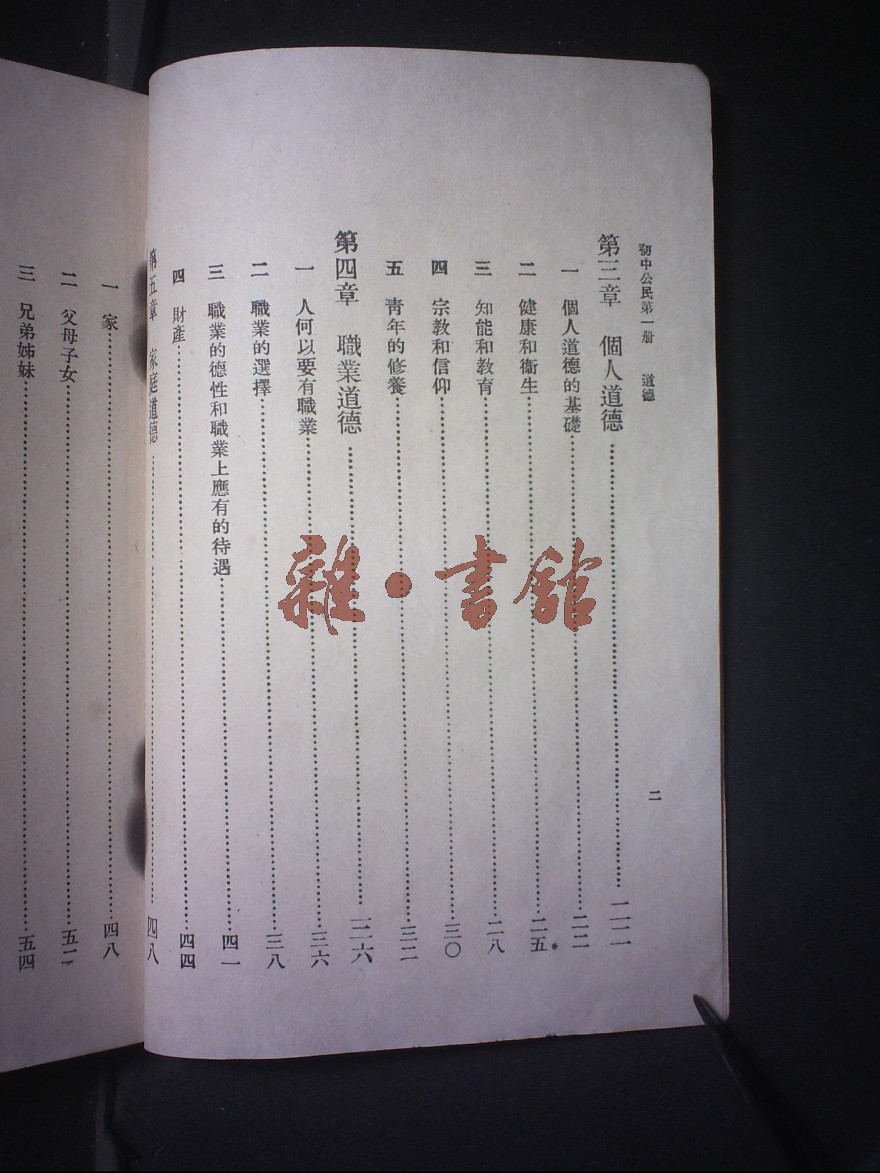 初中公民第一册　道德
二
第三章　個人道德……二二
一　個人道德的基礎……二二
二　健康和衞生……二五
三　知能和教育……二八
四　宗教和信仰……三〇
五　靑年的修養……三二
第四章　職業道德……三六
一　人何以要有職業……三六
二　職業的選擇……三八
三　職業的德性和職業上應有的待遇……四一
四　財產……四四
第五章　家庭道德……四八
一　家……四八
二　父母子女……五二
三　兄弟姊妹……五四
雜·書館